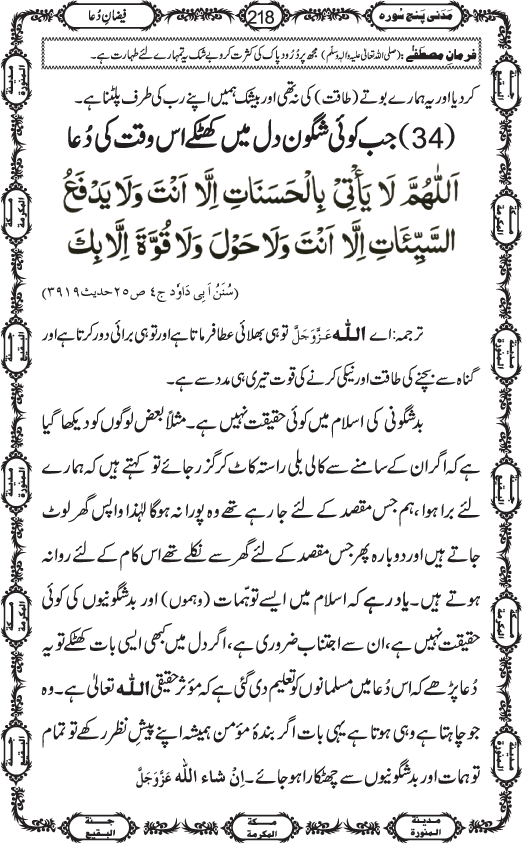 مَدَنی پنج سورہ 218 فیضانِ دُعا
فرمانِ مصطفٰے: (صلی اللہ تعالیٰ علیہ والہ وسلم) مجھ پر دُرُود پاک کی کثرت کرو بے شک یہ تمہارے لئے طہارت ہے۔
کر دیا اور یہ ہمارے بوتے (طاقت) کی نہ تھی اور بیشک ہمیں اپنے رب کی طرف پلٹنا ہے۔
(34) جب کوئی شگون دل میں کھٹکے اس وقت کی دُعا
اَللّٰهُمَّ لَا يَأْتِىْ بِالْحَسَنَاتِ اِلَّا اَنْتَ وَلَا يَدْفَعُ
السَّيِّئَاتِ اِلَّا اَنْتَ وَلَا حَوْلَ وَلَا قُوَّةَ اِلَّا بِكَ
(سُنَنُ اَبِی دَاوٗد ج٤ ص٢٥ حدیث ٣٩١٩)
ترجمہ: اے اللہ عَزَّوَجَلَّ تو ہی بھلائی عطا فرماتا ہے اور تو ہی برائی دور کرتا ہے اور
گناہ سے بچنے کی طاقت اور نیکی کرنے کی قوت تیری ہی مدد سے ہے۔
بدشگونی کی اسلام میں کوئی حقیقت نہیں ہے۔ مثلاً بعض لوگوں کو دیکھا گیا
ہے کہ اگر ان کے سامنے سے کالی بلی راستہ کاٹ کر گزر جائے تو کہتے ہیں کہ ہمارے
لئے برا ہوا، ہم جس مقصد کے لئے جا رہے تھے وہ پورا نہ ہوگا لہٰذا واپس گھر لوٹ
جاتے ہیں اور دوبارہ پھر جس مقصد کے لئے گھر سے نکلے تھے اس کام کے لئے روانہ
ہوتے ہیں۔ یاد رہے کہ اسلام میں ایسے توہّمات (وہموں) اور بدشگونیوں کی کوئی
حقیقت نہیں ہے، ان سے اجتناب ضروری ہے، اگر دل میں کبھی ایسی بات کھٹکے تو یہ
دُعا پڑھے کہ اس دُعا میں مسلمانوں کو تعلیم دی گئی ہے کہ مؤثر حقیقی اللہ تعالیٰ ہے۔ وہ
جو چاہتا ہے وہی ہوتا ہے یہی بات اگر بندۂ مؤمن ہمیشہ اپنے پیشِ نظر رکھے تو تمام
توہمات اور بدشگونیوں سے چھٹکارا ہو جائے۔ اِنْ شاءَ اللہ عَزَّوَجَلَّ
مدینة المنورة
مکة المکرمة
جنة البقیع